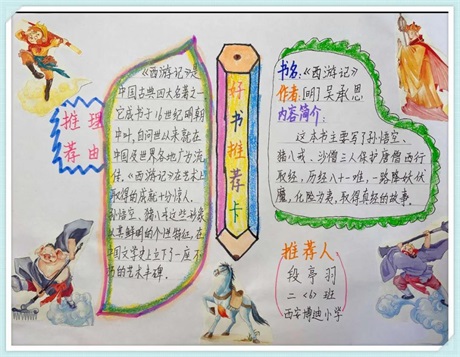 推荐理由
《西游记》是
中国古典四大名著之一
它成书于16世纪明朝
中叶,自问世以来就在
中国及世界各地广为流
传。《西游记》在艺术上
取得的成就十分惊人,
孙悟空、猪八戒这些形象
以其鲜明的个性特征,在
中国文学史上立下了一座不
朽的艺术丰碑.
好书推荐卡
书名:《西游记》
作者:[明]吴承恩
内容简介:
这本书主要写了孙悟空、
猪八戒、沙僧三人保护唐僧西行
取经,历经八十一难,一路降妖伏
魔,化险为夷,取得真经的故事.
推荐人
段亭羽
二〈6〉班
西安博迪小学